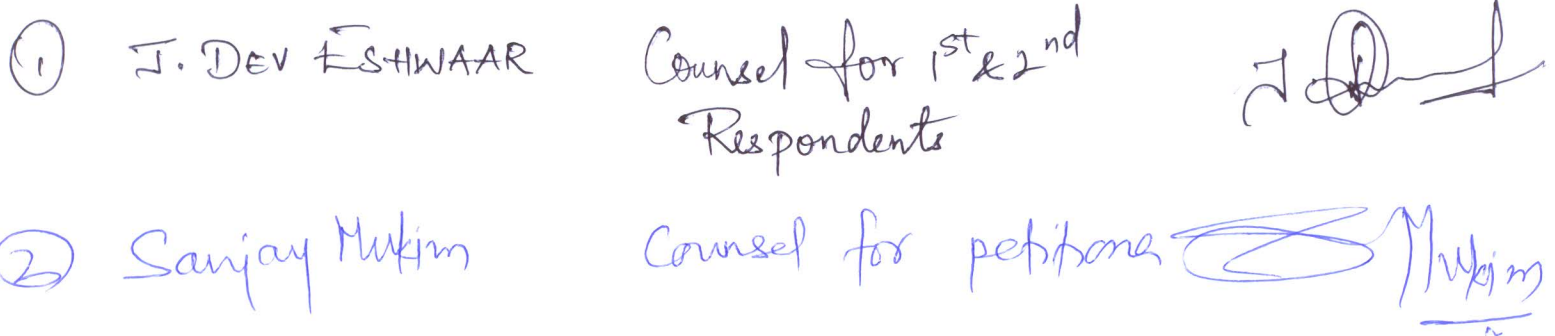 1 J. DEV ESHWAAR Counsel for 1st & 2nd
Respondents
2 Sanjay Mukim Counsel for petitioner Mukim